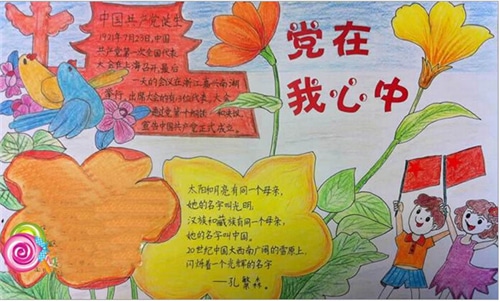 中国共产党诞生
1921年7月23日,中国
共产党第一次全国代表
大会在上海召开,最后
一天的会议在浙江嘉兴南湖
举行,出席大会的有13位代表,大会
通过党第一个纲领和决议,
宣告中国共产党正式成立。
党在
我心中
太阳和月亮有同一个母亲,
她的名字叫光明,
汉族和藏族有同一个母亲,
她的名字叫中国。
20世纪中国大西南广阔的雪原上,
闪烁着一个光辉的名字
——孔繁森。